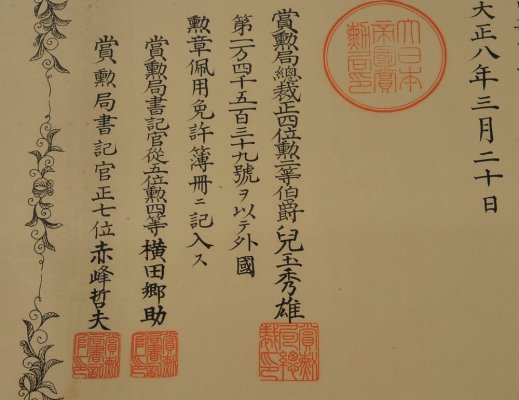 大正八年三月二十日
大日本帝國賞勲局印
賞勲局總裁正四位勲二等伯爵兒玉秀雄
第二万四千五百三十九號ヲ以テ外國
勲章佩用免許簿冊ニ記入ス
賞勲局書記官從五位勲四等横田郷助
賞勲局書記官正七位赤峰哲夫